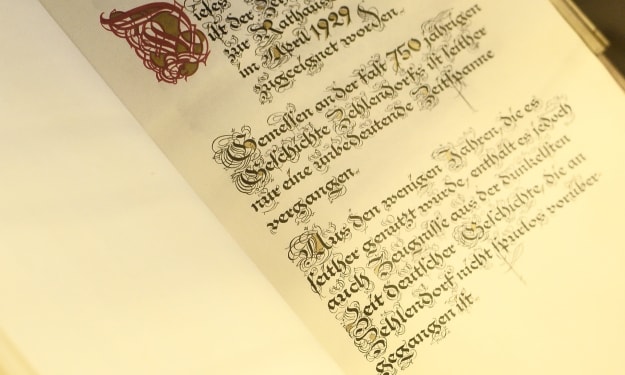 ist der
zur Rathaus
im April 1929
zugeeignet worden.
Gemessen an der fast 750 jährigen
Geschichte Zehlendorfs, ist seither
nur eine unbedeutende Zeitspanne
vergangen.
Aus den wenigen Jahren, die es
seither genutzt wurde, enthält es jedoch
auch Zeugnisse aus der dunkelsten
Zeit deutscher Geschichte, die an
Zehlendorf nicht spurlos vorüber-
gegangen ist.